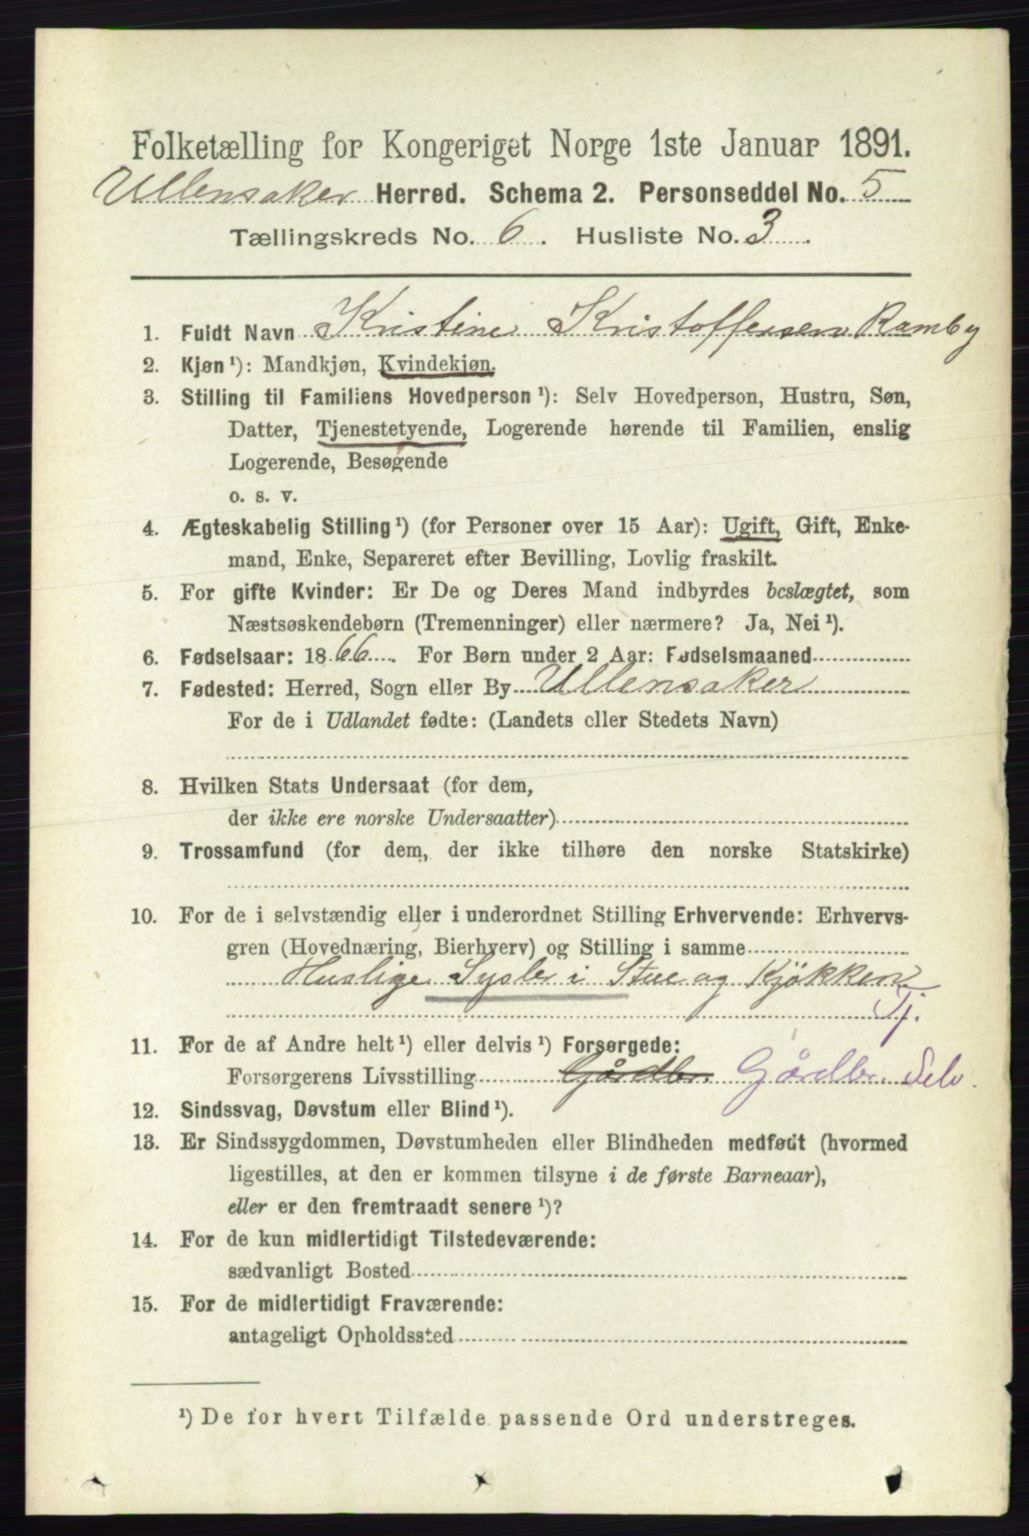 Folketælling for Kongeriget Norge 1ste Januar 1891.
Ullensaker Herred. Schema 2. Personseddel No. 5
Tællingskreds No. 6. Husliste No. 3.
1. Fuldt Navn Kristine Kristoffersen Ramby
2. Kjøn ¹): Mandkjøn, Kvindekjøn.
3. Stilling til Familiens Hovedperson ¹): Selv Hovedperson, Hustru, Søn,
Datter, Tjenestetyende, Logerende hørende til Familien, enslig
Logerende, Besøgende
o. s. v.
4. Ægteskabelig Stilling ¹) (for Personer over 15 Aar): Ugift, Gift, Enke-
mand, Enke, Separeret efter Bevilling, Lovlig fraskilt.
5. For gifte Kvinder: Er De og Deres Mand indbyrdes beslægtet, som
Næstsøskendebørn (Tremenninger) eller nærmere? Ja, Nei ¹).
6. Fødselsaar: 1866. For Børn under 2 Aar: Fødselsmaaned
7. Fødested: Herred, Sogn eller By Ullensaker
For de i Udlandet fødte: (Landets eller Stedets Navn)
8. Hvilken Stats Undersaat (for dem,
der ikke ere norske Undersaatter)
9. Trossamfund (for dem, der ikke tilhøre den norske Statskirke)
10. For de i selvstændig eller i underordnet Stilling Erhvervende: Erhvervs-
gren (Hovednæring, Bierhverv) og Stilling i samme
Huslige Sysler i Stue og Kjøkken
Tj.
11. For de af Andre helt ¹) eller delvis ¹) Forsørgede:
Forsørgerens Livsstilling Gårdbr. Gårdbr. Selv.
12. Sindssvag, Døvstum eller Blind ¹).
13. Er Sindssygdommen, Døvstumheden eller Blindheden medfødt (hvormed
ligestilles, at den er kommen tilsyne i de første Barneaar),
eller er den fremtraadt senere ¹)?
14. For de kun midlertidigt Tilstedeværende:
sædvanligt Bosted
15. For de midlertidigt Fraværende:
antageligt Opholdssted
¹) De for hvert Tilfælde passende Ord understreges.